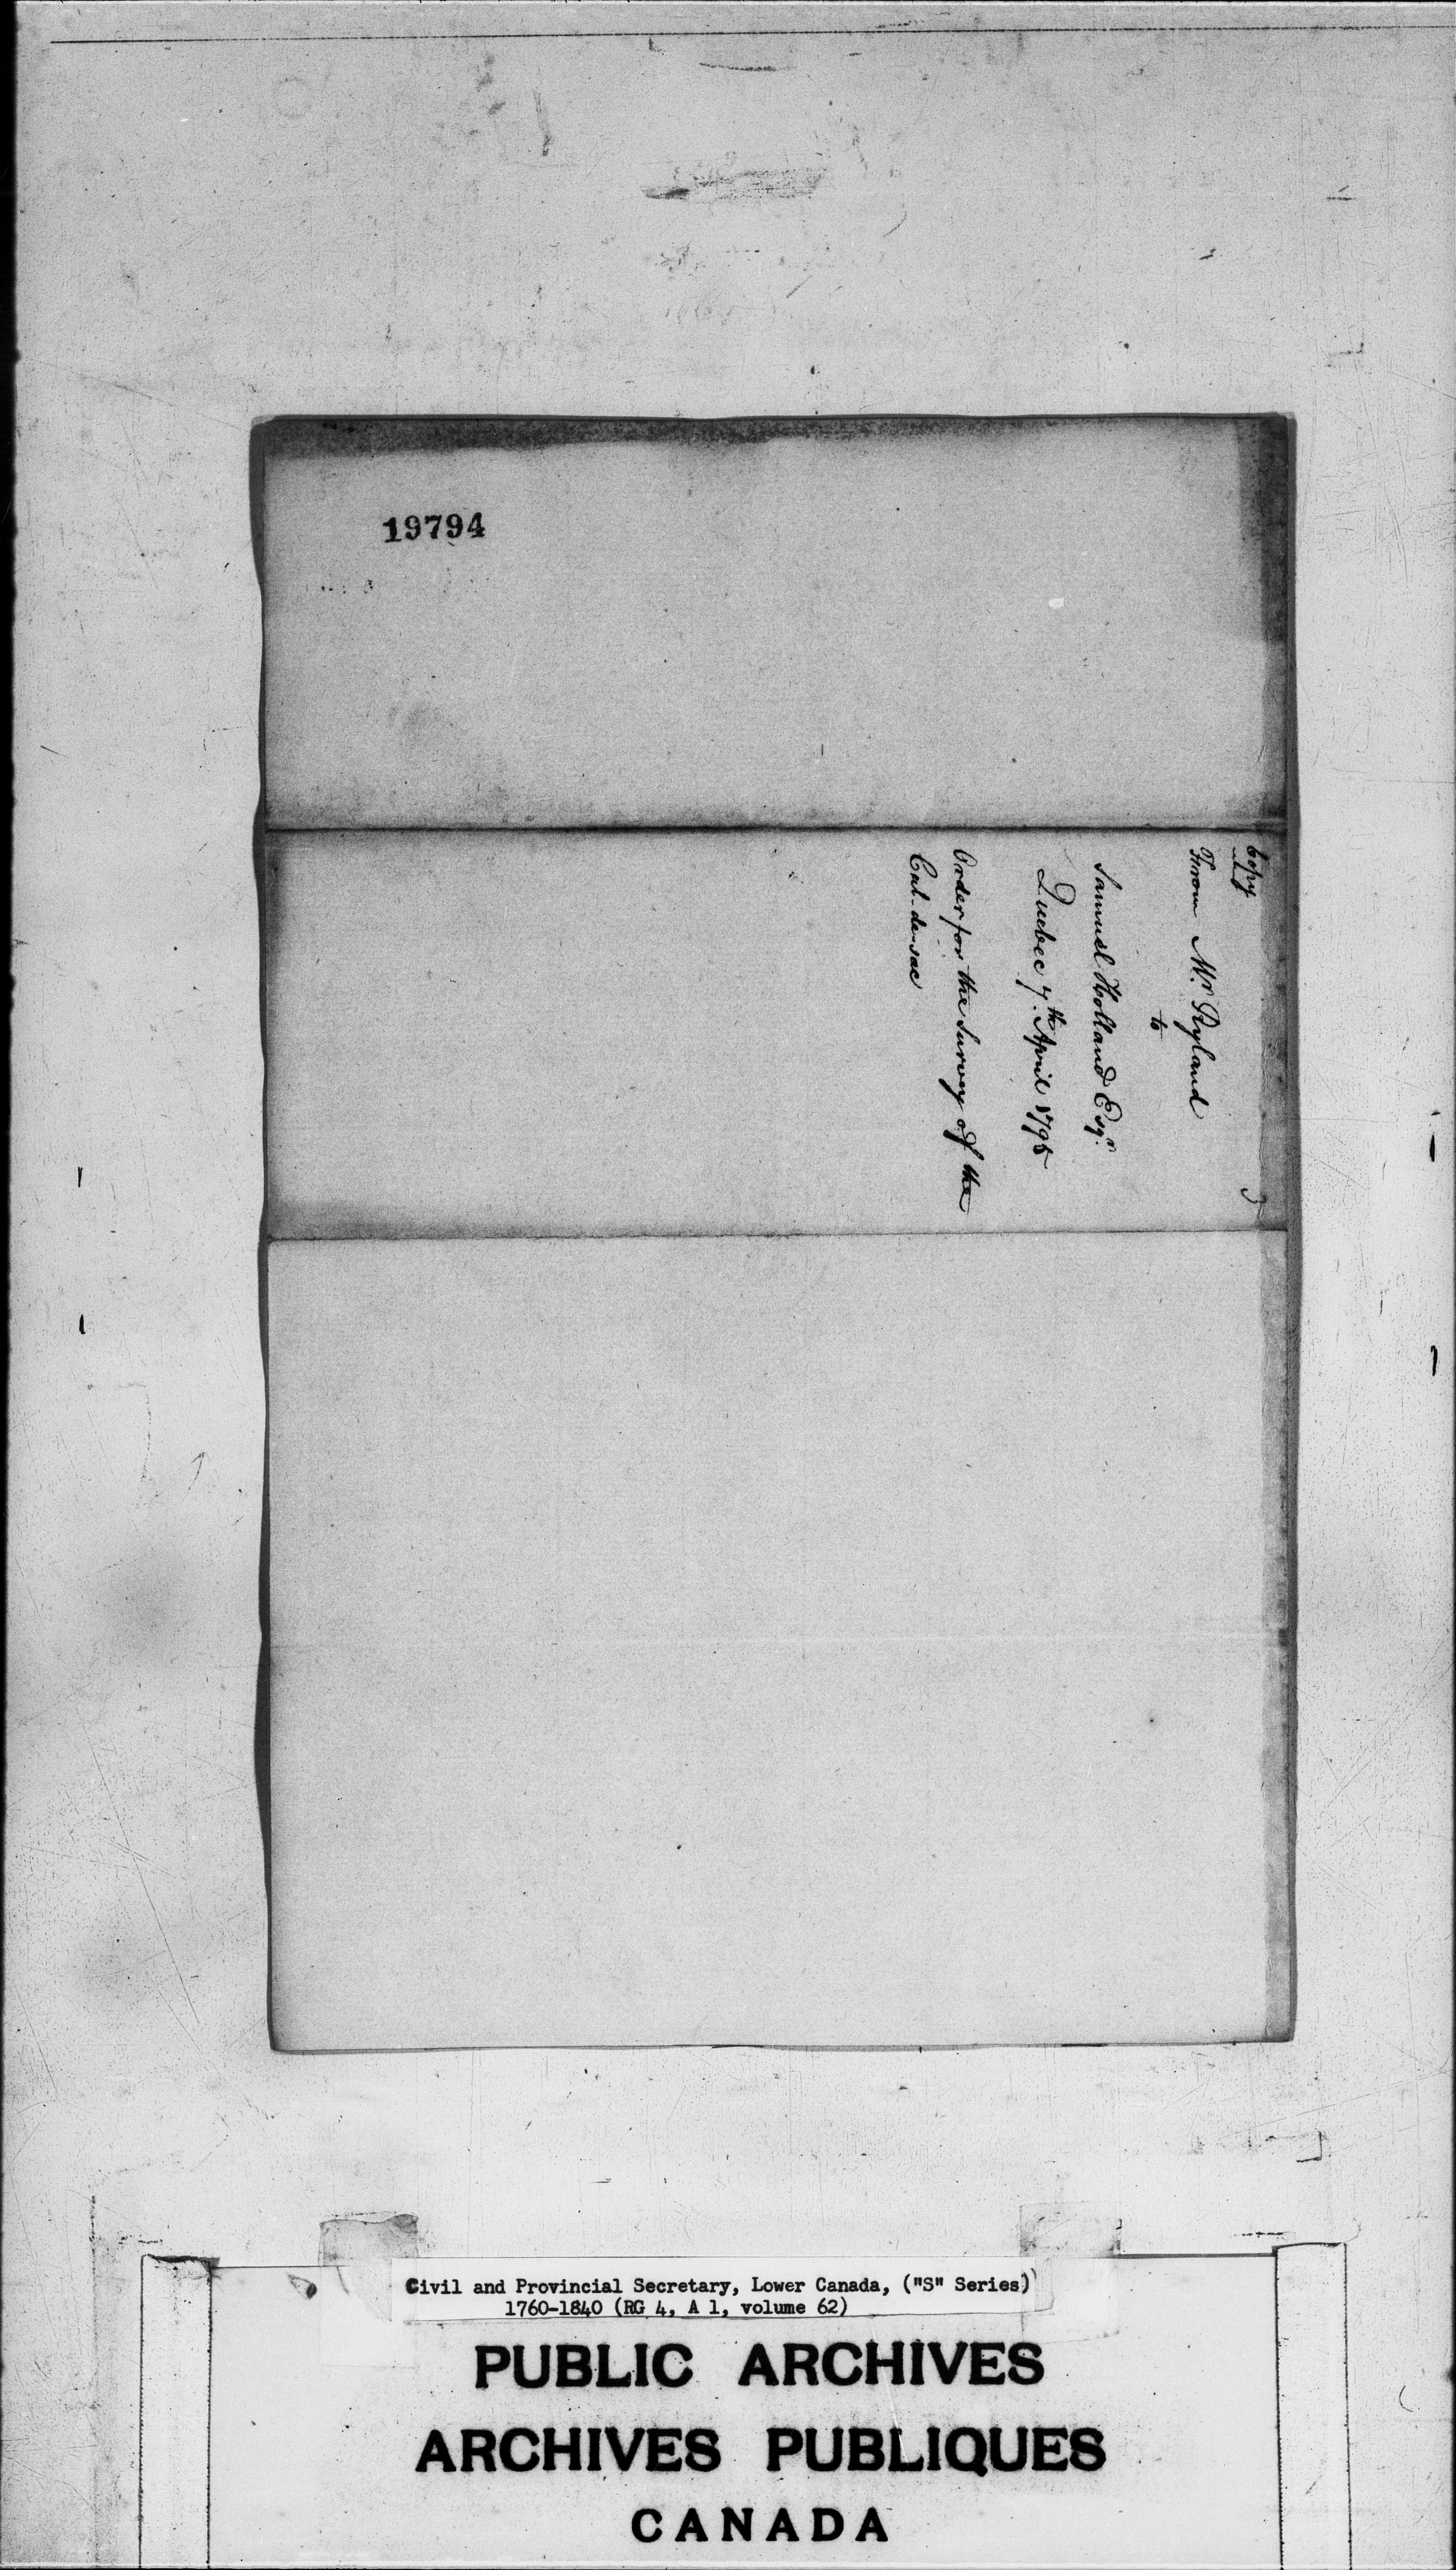 19794
Copy
3
From Mr. Ryland
to
Samuel Holland Esqr.
Quebec 7th. April 1795
Order for the Survey of the
Cul-de-sac
Civil and Provincial Secretary, Lower Canada, ("S" Series)
1760-1840 (RG 4, A 1, volume 62)
PUBLIC ARCHIVES
ARCHIVES PUBLIQUES
CANADA